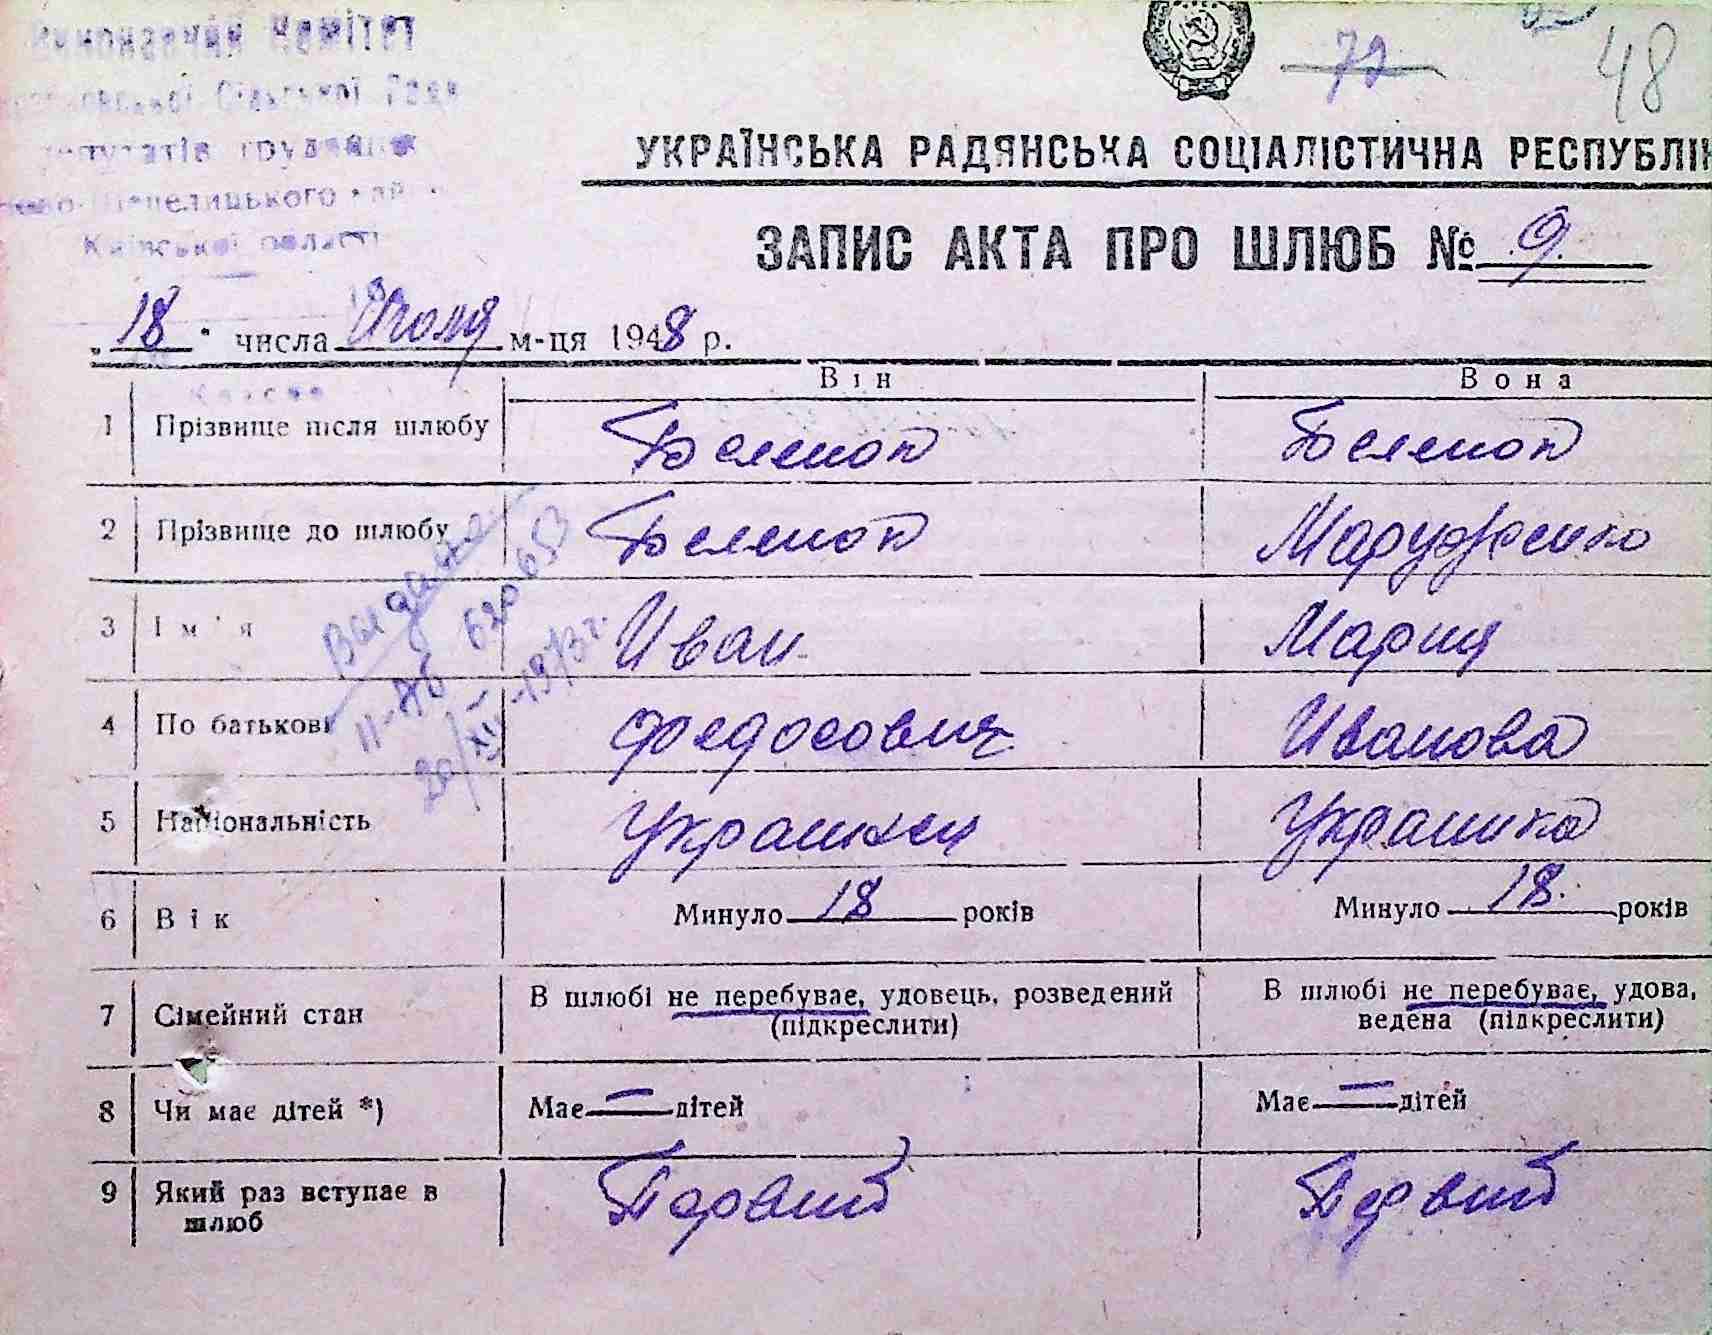 Виконавчий Комітет
Сільської Ради
депутатів трудящих
Ново-Шепелицького рай
Київської області
72
48
УКРАЇНСЬКА РАДЯНСЬКА СОЦІАЛІСТИЧНА РЕСПУБЛІК
ЗАПИС АКТА ПРО ШЛЮБ № 9.
„18" числа Июля м-ця 1948 р.
Він Вона
1 Прізвище після шлюбу Белемот Белемот
2 Прізвище до шлюбу Белемот
3 Ім'я Иван Мария
4 По батькові Федосович Иванова
5 Національність Украинец Украинка
6 Вік Минуло 18 років Минуло 18. років
7 Сімейний стан В шлюбі не перебуває, удовець, розведений (підкреслити) В шлюбі не перебуває, удова, ведена (підкреслити)
8 Чи має дітей *) Має — дітей Має — дітей
9 Який раз вступає в шлюб Первий Первий
Выдано
II-АБ 620653
20/XII-1973 г.